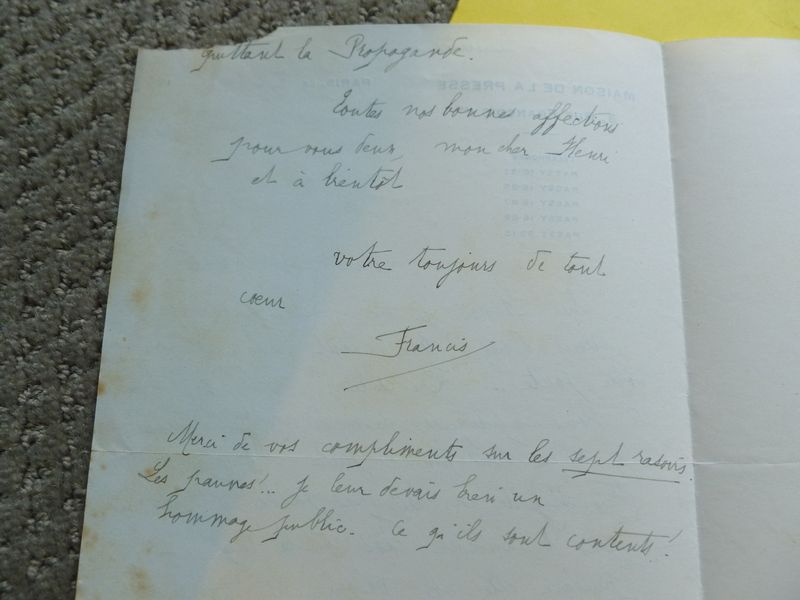 quittant la Propagande.
Toutes nos bonnes affections
pour vous deux, mon cher Henri
et à bientôt
votre toujours de tout
coeur
Francis
Merci de vos compliments sur les sept rasoirs.
Les pauvres!... je leur devais bien un
hommage public. Ce qu'ils sont contents!
MAISON DE LA PRESSE
PARIS